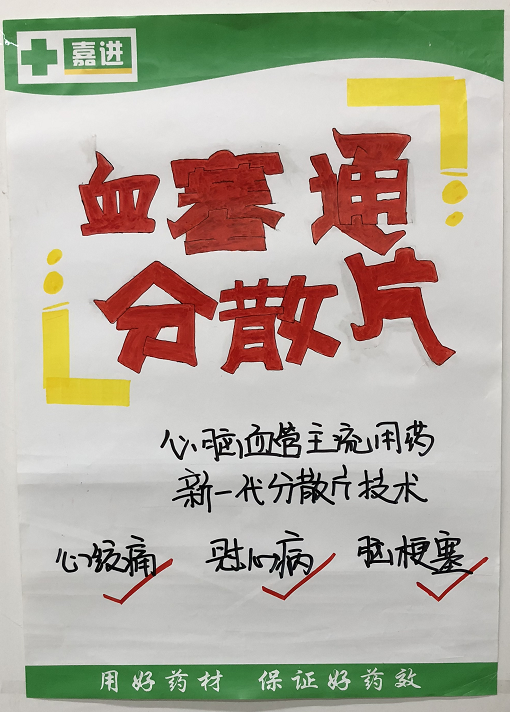 嘉进
血塞通
分散片
心脑血管主流用药
新一代分散片技术
心绞痛 冠心病 脑梗塞
用好药材 保证好药效